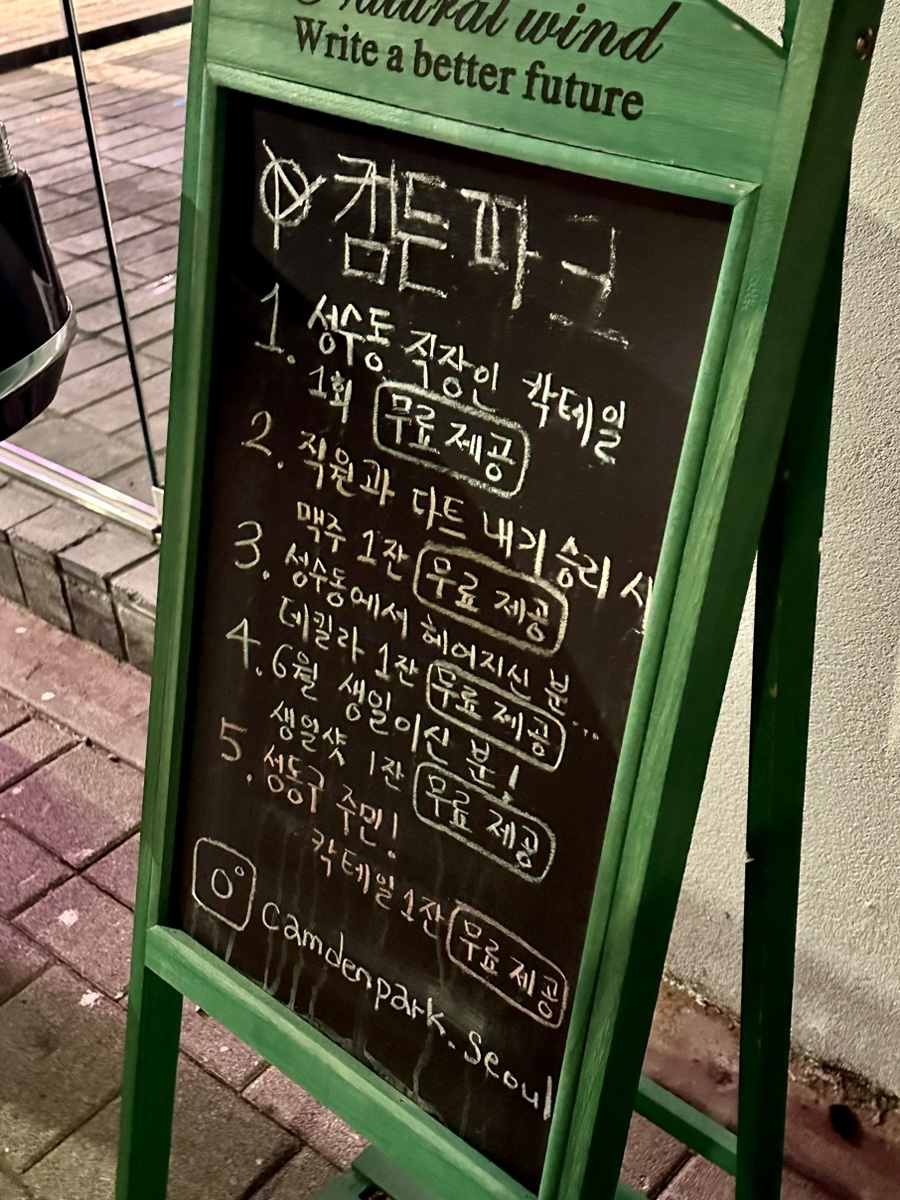 Natural wind
Write a better future
캠든파크
1. 성수동 직장인 칵테일
1회 무료 제공
2. 직원과 다트 내기 승리 시
맥주 1잔 무료 제공
3. 성수동에서 헤어지신 분...
데킬라 1잔 무료 제공
4. 6월 생일이신 분!
생일샷 1잔 무료 제공
5. 성동구 주민!
칵테일 1잔 무료 제공
camdenpark.seoul